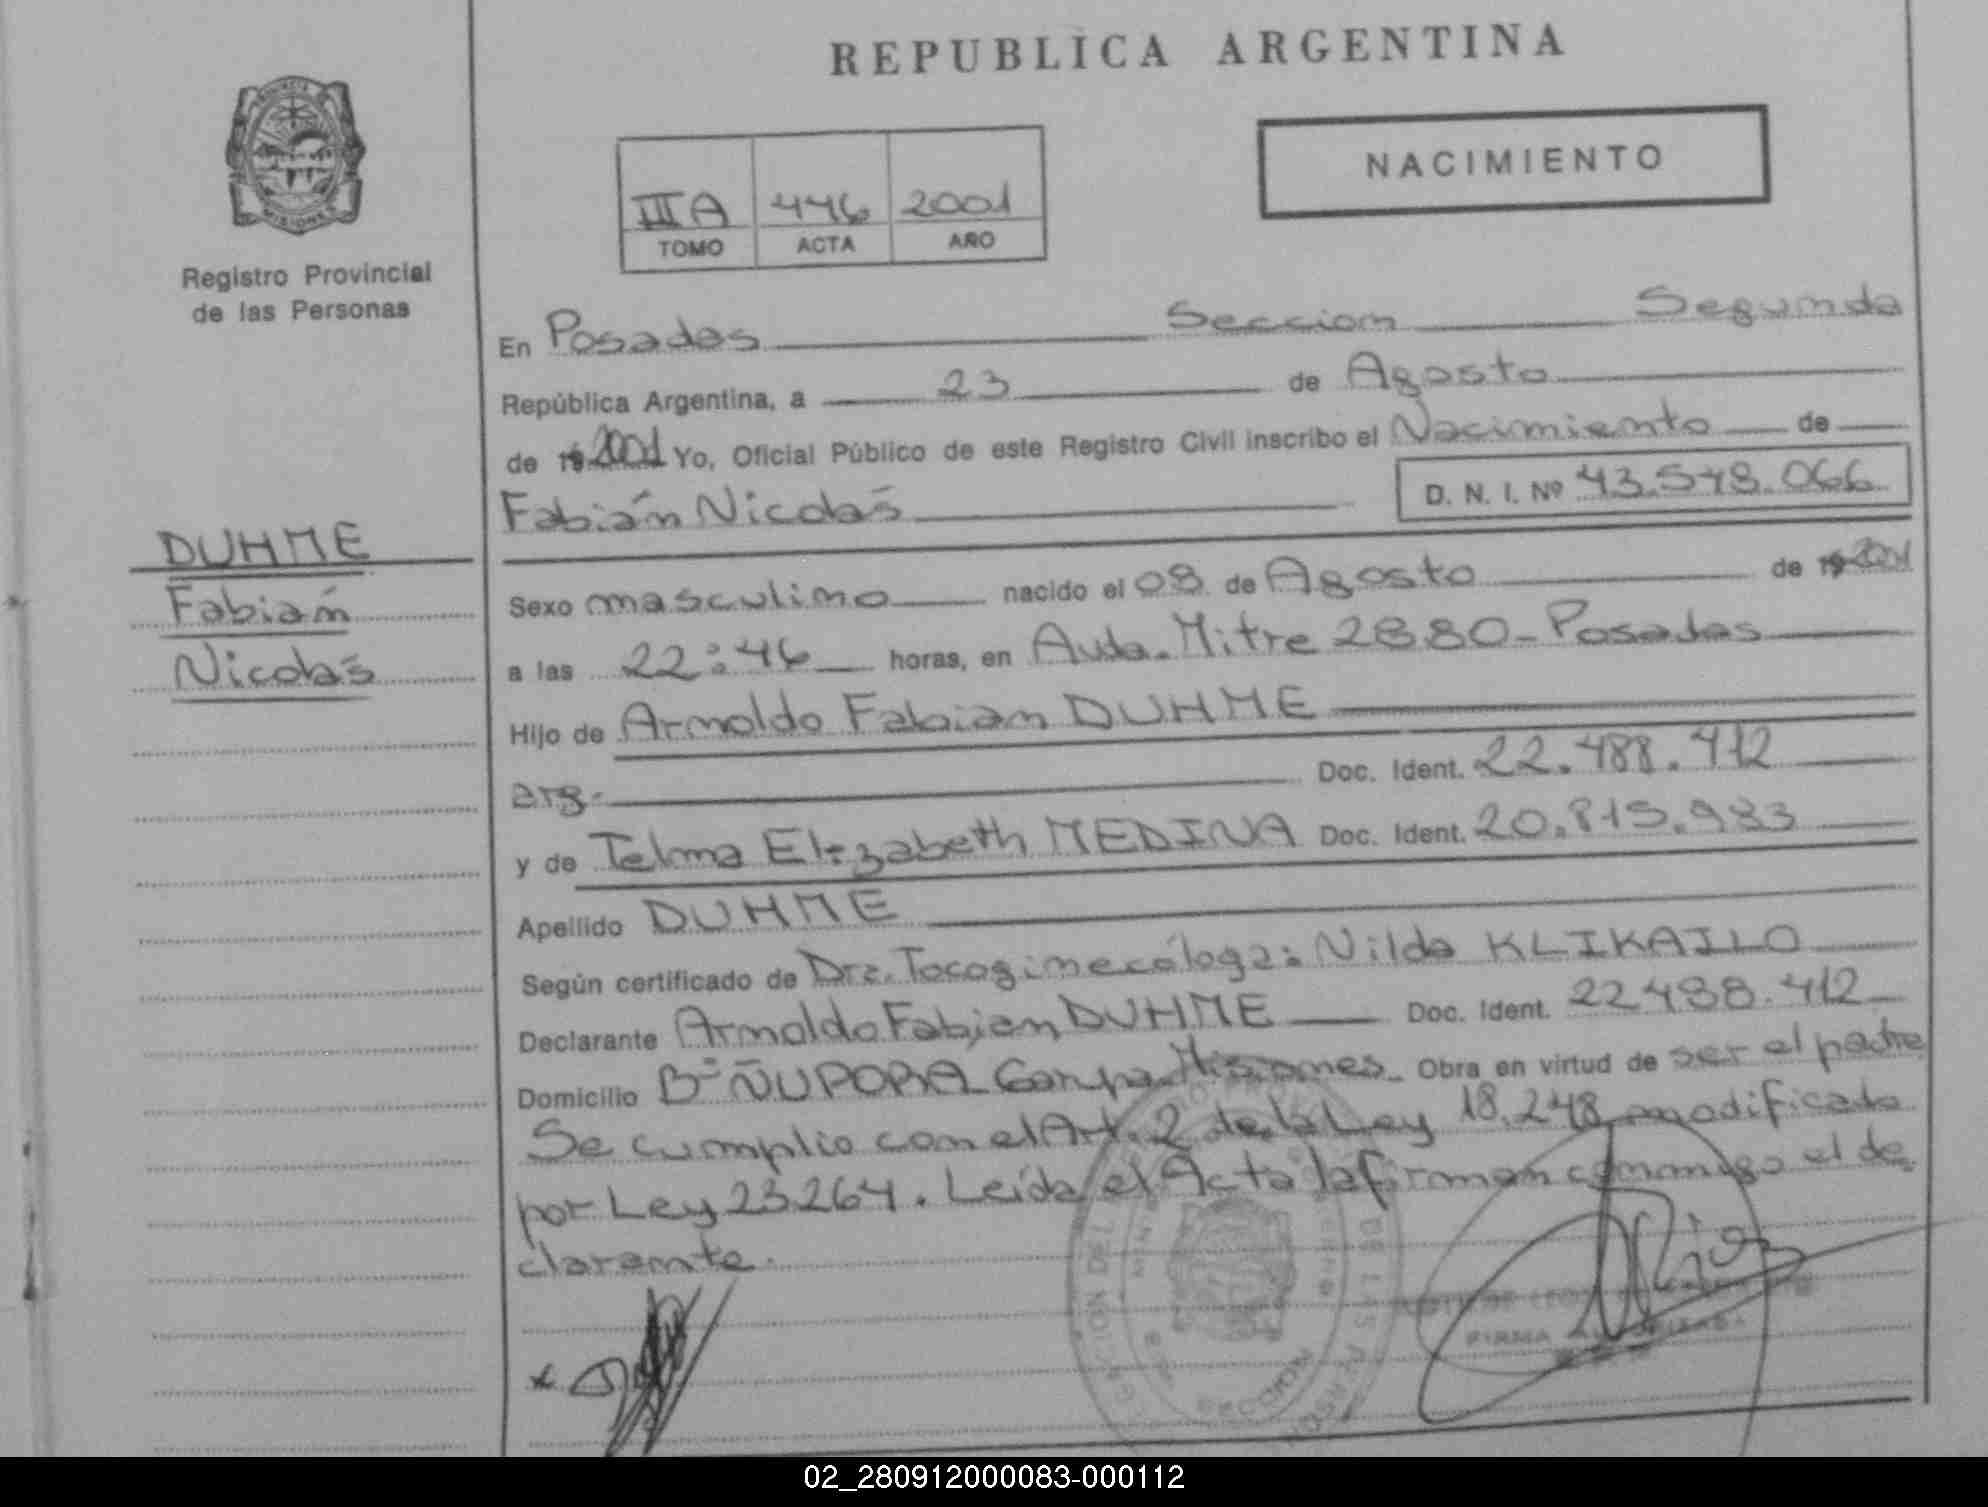 REPUBLICA ARGENTINA
PROVINCIA
MISIONES
Registro Provincial
de las Personas
NACIMIENTO
III A 446 2001
TOMO ACTA AÑO
En Posadas Seccion Segunda
República Argentina, a 23 de Agosto
de 19 2001 Yo, Oficial Público de este Registro Civil inscribo el Nacimiento de
Fabián Nicolás D. N. I. Nº 43.548.066
DUHME
Fabián
Nicolás
Sexo masculino nacido el 08 de Agosto de 19 2001
a las 22:46 horas, en Avda. Mitre 2880 - Posadas
Hijo de Arnoldo Fabian DUHME
arg. Doc. Ident. 22.488.412
y de Telma Elizabeth MEDINA Doc. Ident. 20.815.983
Apellido DUHME
Según certificado de Dra. Tocoginecóloga: Nilda KLIKAILO
Declarante Arnoldo Fabian DUHME Doc. Ident. 22488.412
Domicilio Bº ÑUPORA Garupa Misiones. Obra en virtud de ser el padre
Se cumplio con el Art. 2 de la Ley 18.248 modificada
por Ley 23.264. Leída el Acta la firman conmigo el de
clarante.
FIRMA AUTORIZADA
02_280912000083-000112